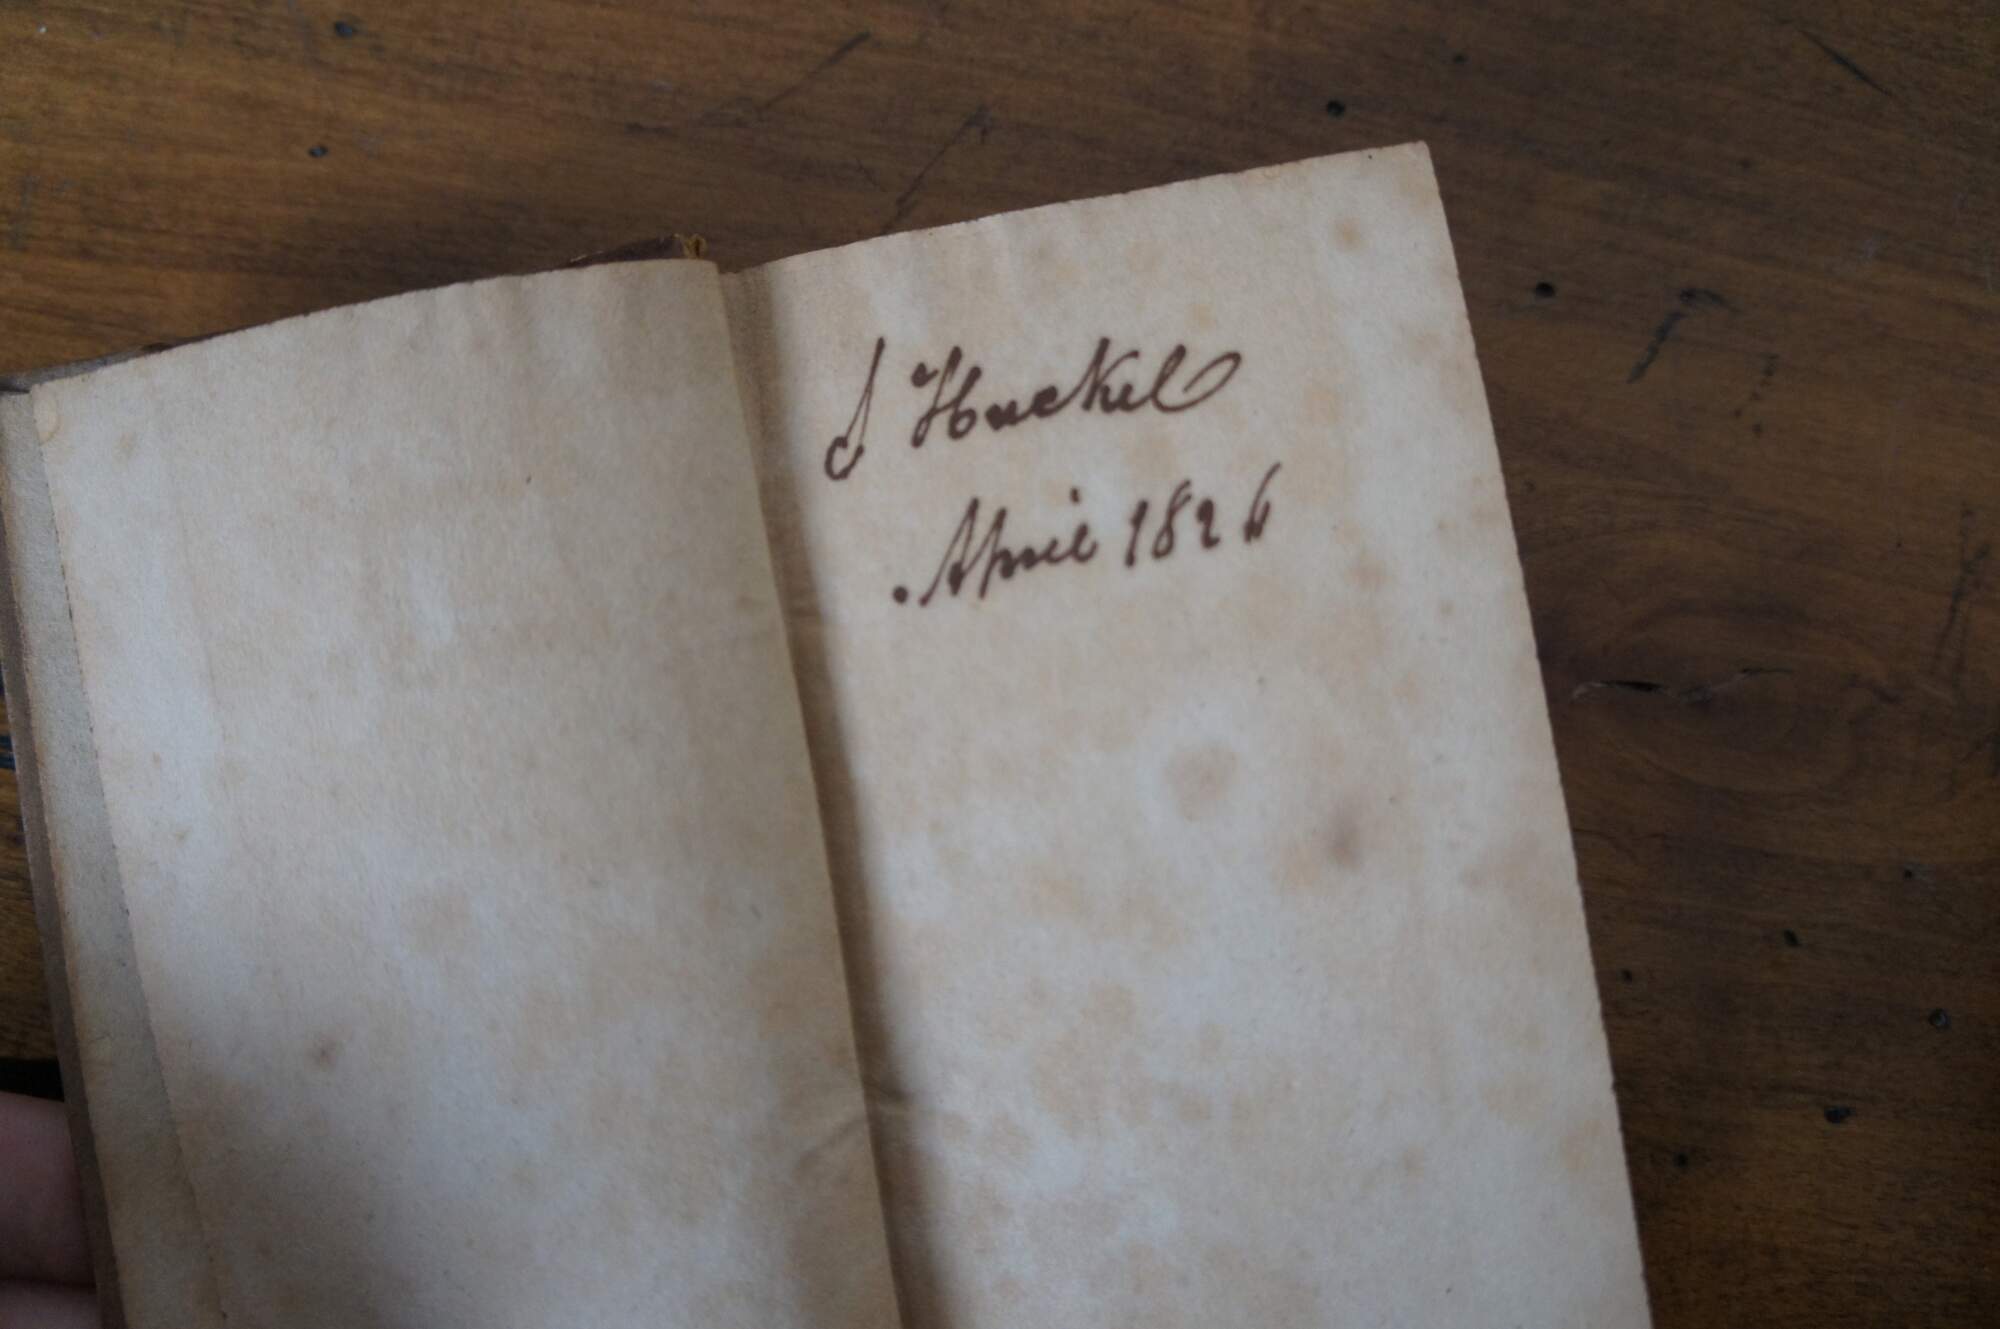 J Haeckel
April 1826